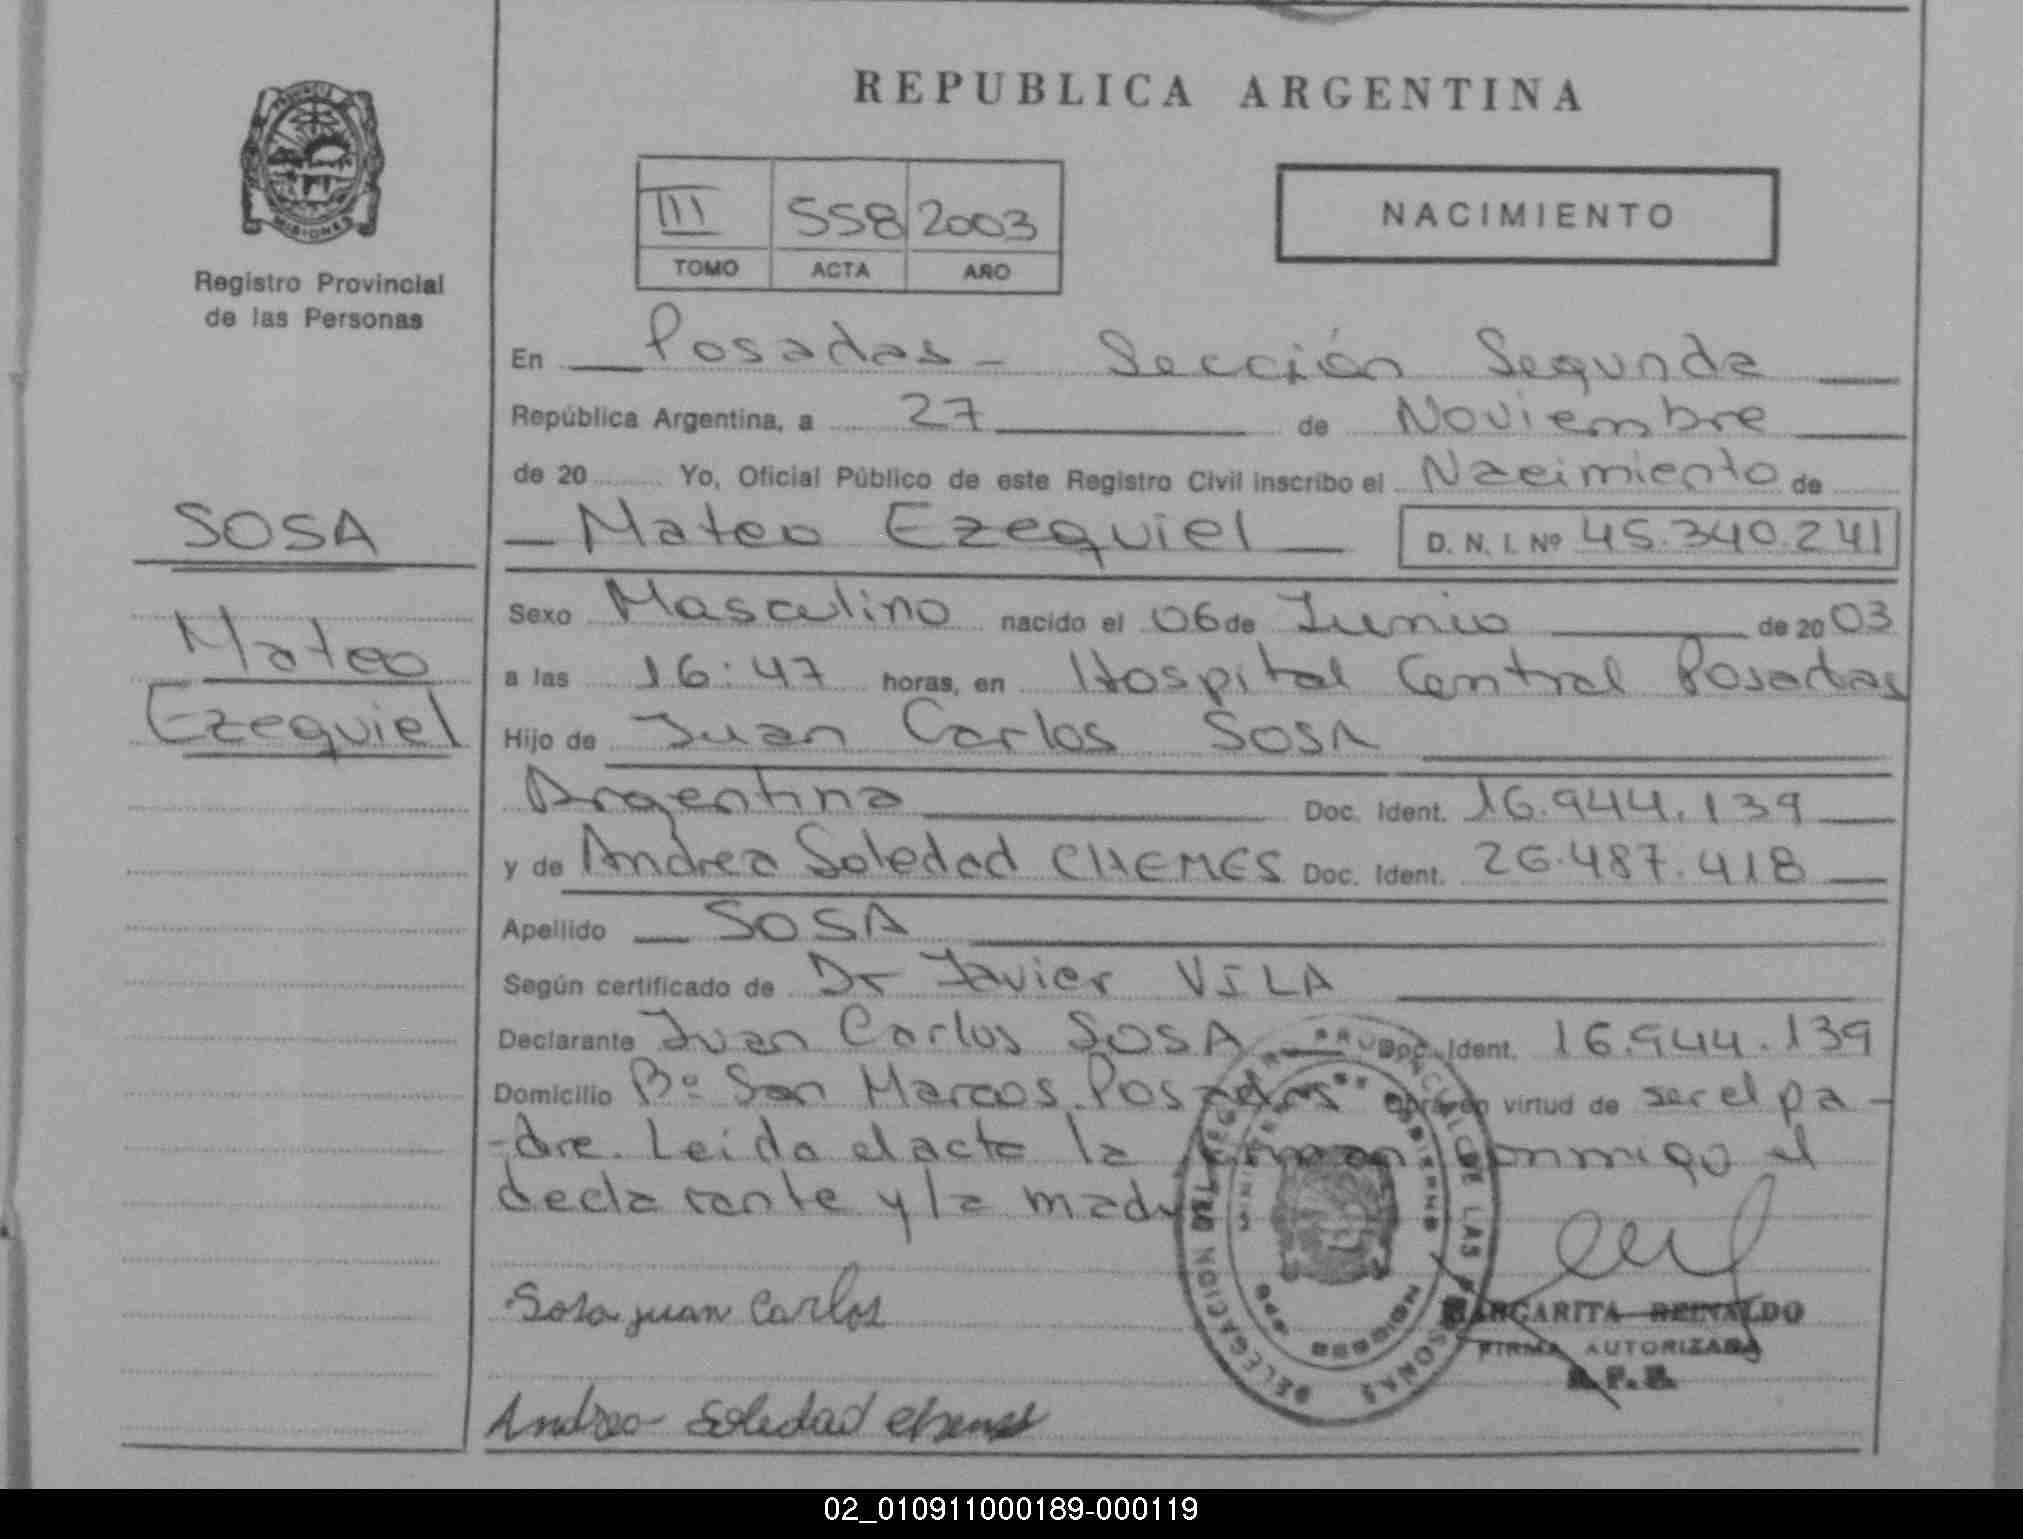 REPUBLICA ARGENTINA
PROVINCIA DE MISIONES
Registro Provincial
de las Personas
III 558 2003
TOMO ACTA AÑO
NACIMIENTO
En Posadas - Sección Segunda
República Argentina, a 27 de Noviembre
de 20 Yo, Oficial Público de este Registro Civil inscribo el Nacimiento de
Mateo Ezequiel D. N. I. Nº 45.340.241
SOSA
Mateo
Ezequiel
Sexo Masculino nacido el 06 de Junio de 2003
a las 16:47 horas, en Hospital Central Posadas
Hijo de Juan Carlos SOSA
Argentina Doc. Ident. 16.944.139
y de Andrea Soledad CHEMES Doc. Ident. 26.487.418
Apellido SOSA
Según certificado de Dr Javier VILA
Declarante Juan Carlos SOSA Doc. Ident. 16.944.139
Domicilio Bº San Marcos Posadas Obra en virtud de ser el pa-
-dre. Leida el acta la firman conmigo el
declarante y la madre
Sosa juan Carlos
MARGARITA REINALDO
FIRMA AUTORIZADA
Andrea Soledad chemes
02_010911000189-000119